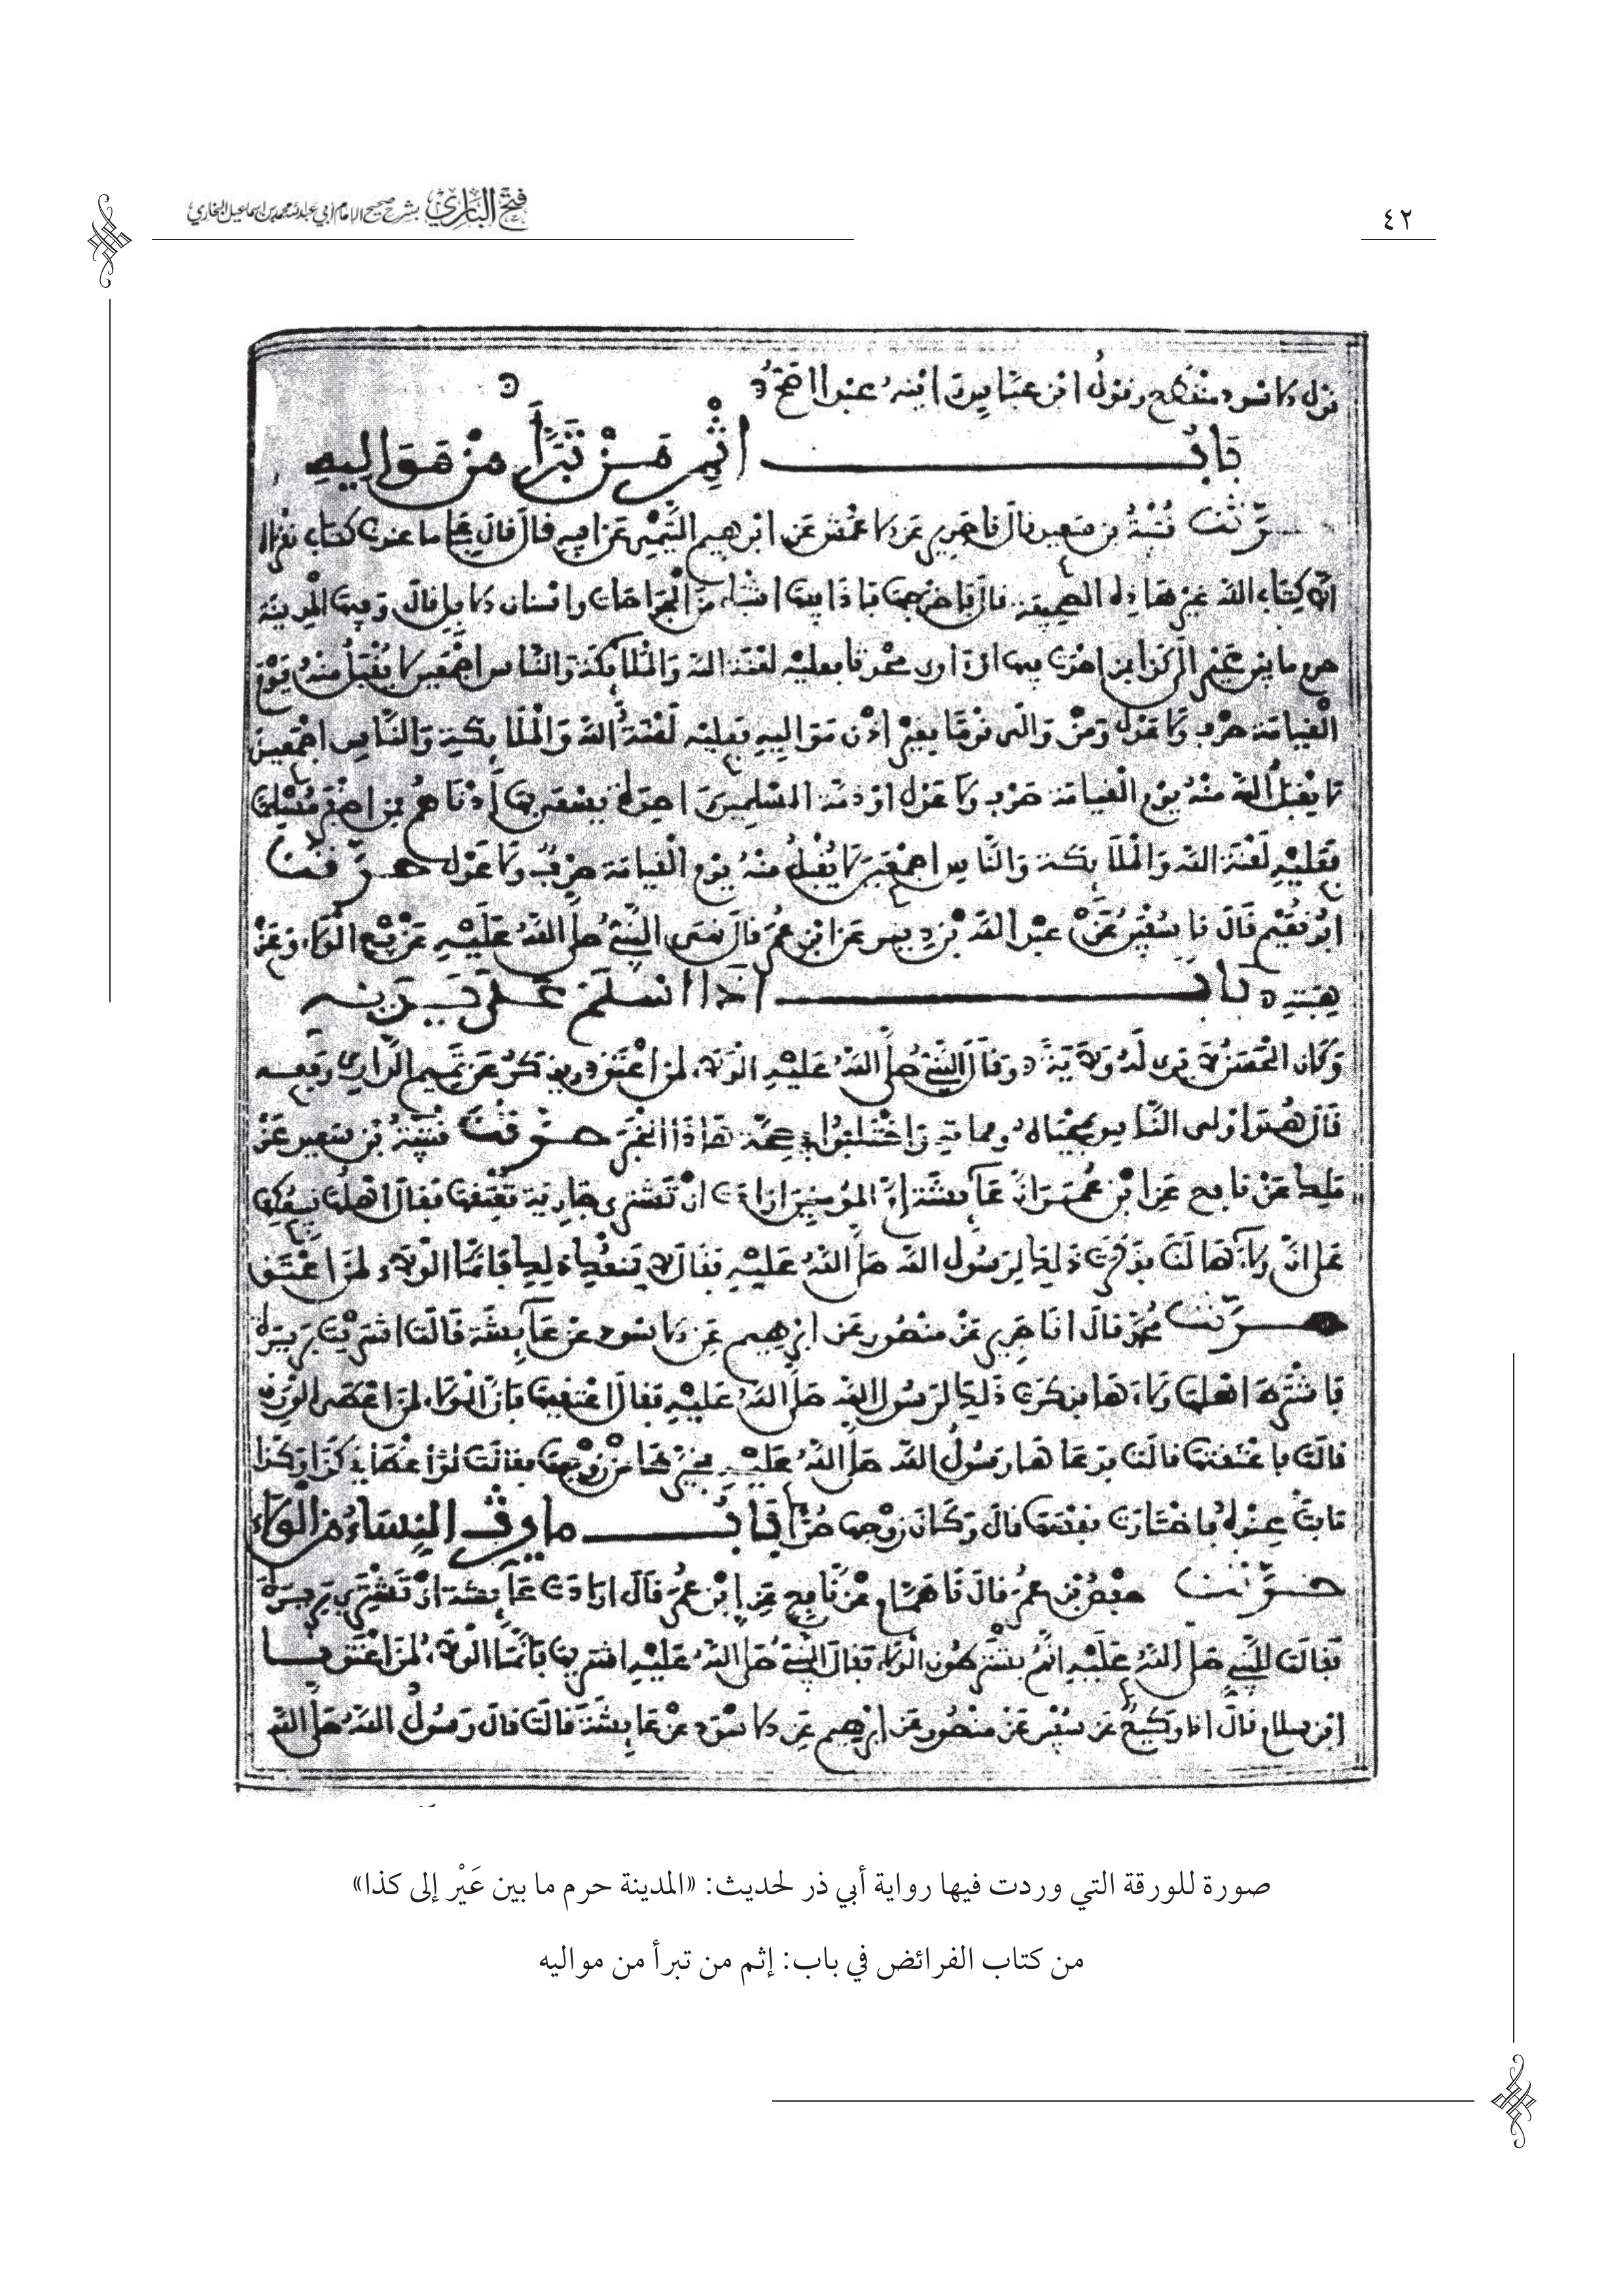 ٤٢
فتح الباري بشرح صحيح الإمام أبي عبد الله محمد بن إسماعيل البخاري
قول الاسود منقطع وقول ابن عباس رايته عبدا اصح
باب اثم من تبرأ من مواليه
حدثنا قتيبة بن سعيد قال نا جرير عن الاعمش عن ابرهيم التيمي عن ابيه قال قال علي ما عندنا كتاب نقرأ
الا كتاب الله غير هاذه الصحيفة قال فاخرجها فاذا فيها اشياء من الجراحات واسنان الابل قال وفيها المدينة
حرم ما بين عير الى كذا من احدث فيها او آوى محدثا فعليه لعنة الله والملائكة والناس اجمعين لا يقبل منه يوم
القيامة صرف ولا عدل ومن والى قوما بغير اذن مواليه فعليه لعنة الله والملائكة والناس اجمعين
لا يقبل الله منه يوم القيامة صرف ولا عدل وذمة المسلمين واحدة يسعى بها أدناهم فمن اخفر مسلما
فعليه لعنة الله والملائكة والناس اجمعين لا يقبل منه يوم القيامة صرف ولا عدل حدثنا
ابو نعيم قال نا سفين عن عبد الله بن دينر عن ابن عمر قال نهى النبي صلى الله عليه عن بيع الولاء وعن
هبته باب اذا اسلم على يديه
وكان الحسن لا يرى له ولاية وقال النبي صلى الله عليه الولاء لمن اعتق ويذكر عن تميم الداري رفعه
قال هو اولى الناس بمحياه ومماته واختلفوا في صحة هاذا الخبر حدثنا قتيبة بن سعيد عن
ملك عن نافع عن ابن عمر ان عائشة ام المومنين ارادت ان تشتري جارية تعتقها فقال اهلها نبيعكها
على ان ولاءها لنا فذكرت ذلك لرسول الله صلى الله عليه فقال لا يمنعك ذلك فانما الولاء لمن اعتق
حدثنا محمد قال انا جرير عن منصور عن ابرهيم عن الاسود عن عائشة قالت اشتريت بريرة
فاشترط اهلها ولاءها فذكرت ذلك لرسول الله صلى الله عليه فقال اعتقيها فان الولاء لمن اعطى الورق
قالت فاعتقتها قالت فدعاها رسول الله صلى الله عليه فخيرها من زوجها فقالت لو اعطاني كذا وكذا
ما بت عنده فاختارت نفسها قال وكان زوجها حرا باب ما يرث النساء من الولاء
حدثنا حفص بن عمر قال نا همام عن نافع عن ابن عمر قال ارادت عائشة ان تشتري بريرة
فقالت للنبي صلى الله عليه انهم يشترطون الولاء فقال النبي صلى الله عليه اشتريها فانما الولاء لمن اعتق نا
ابن سلام قال انا وكيع عن سفين عن منصور عن ابرهيم عن الاسود عن عائشة قالت قال رسول الله صلى الله
صورة للورقة التي وردت فيها رواية أبي ذر لحديث: «المدينة حرم ما بين عَيْر إلى كذا»
من كتاب الفرائض في باب: إثم من تبرأ من مواليه